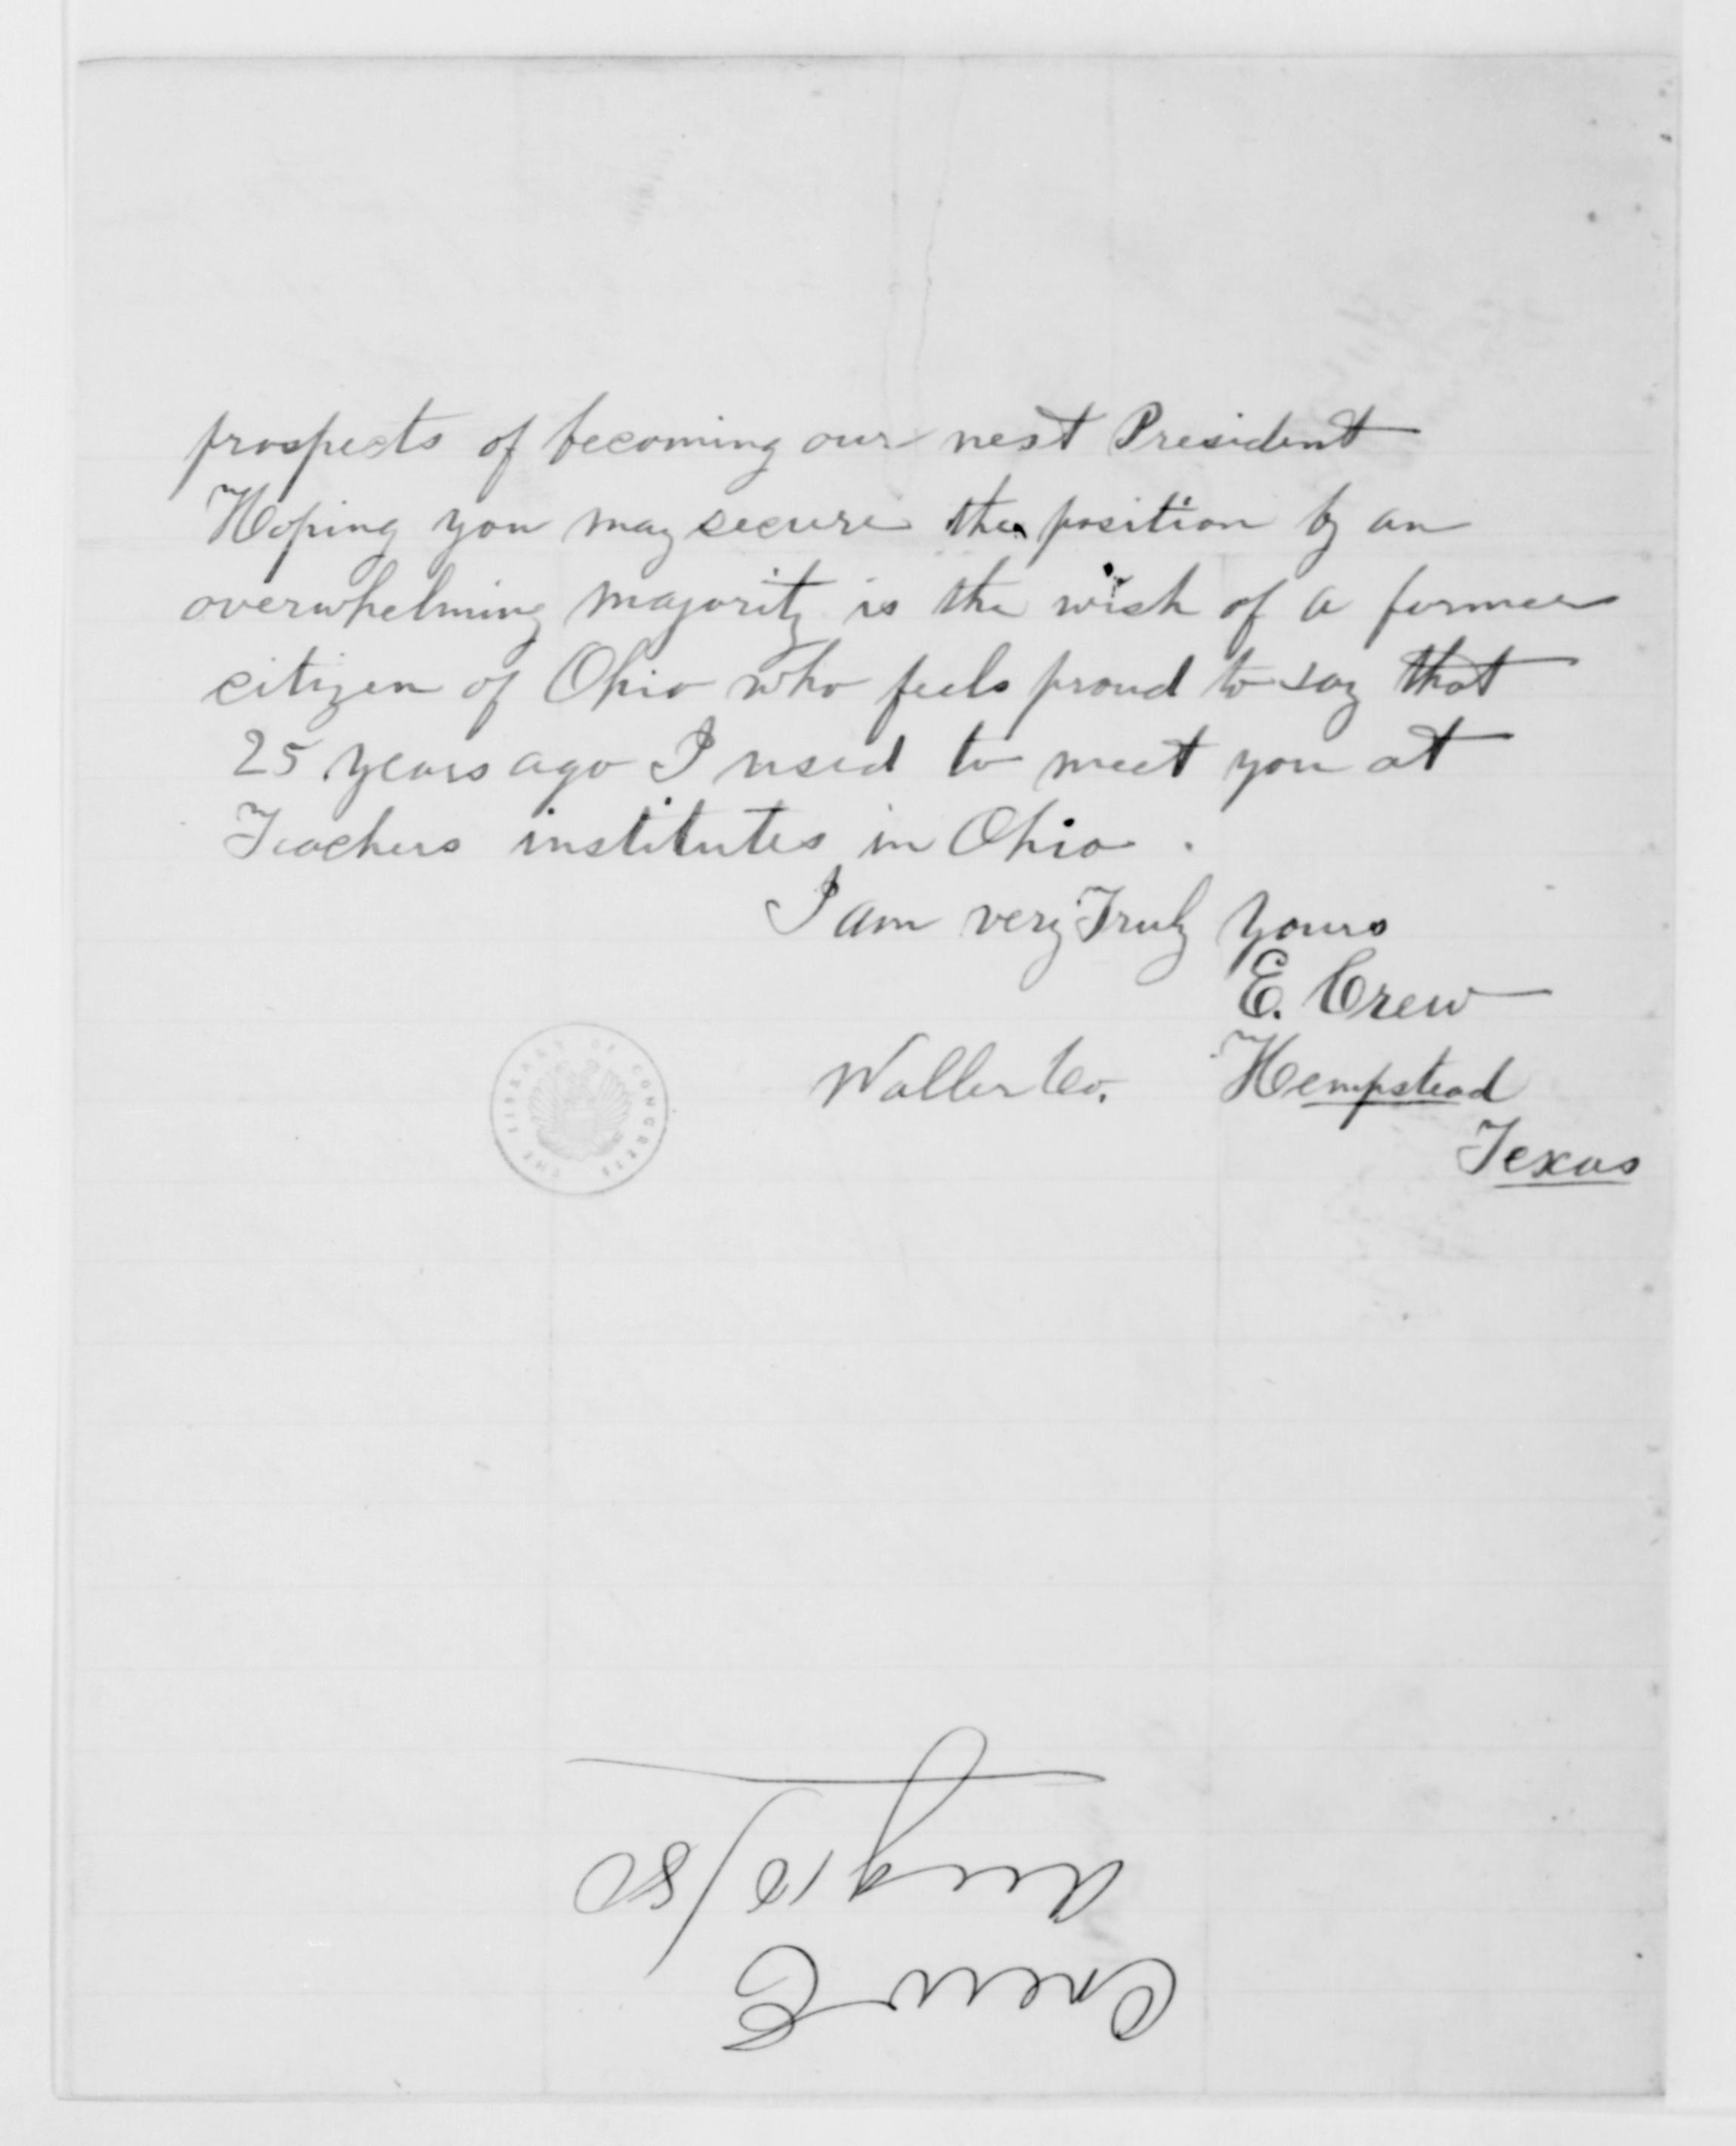 prospects of becoming our nest President
Hoping you may secure the position by an
overwhelming majority is the wish of a former
citizen of Ohio who feels proud to say that
25 years ago I used to meet you at
Teachers institutes in Ohio.
I am very Truly Yours
E. Crew
Waller Co. Hempstead
Texas
THE LIBRARY OF CONGRESS
Crew E
Aug 10/80